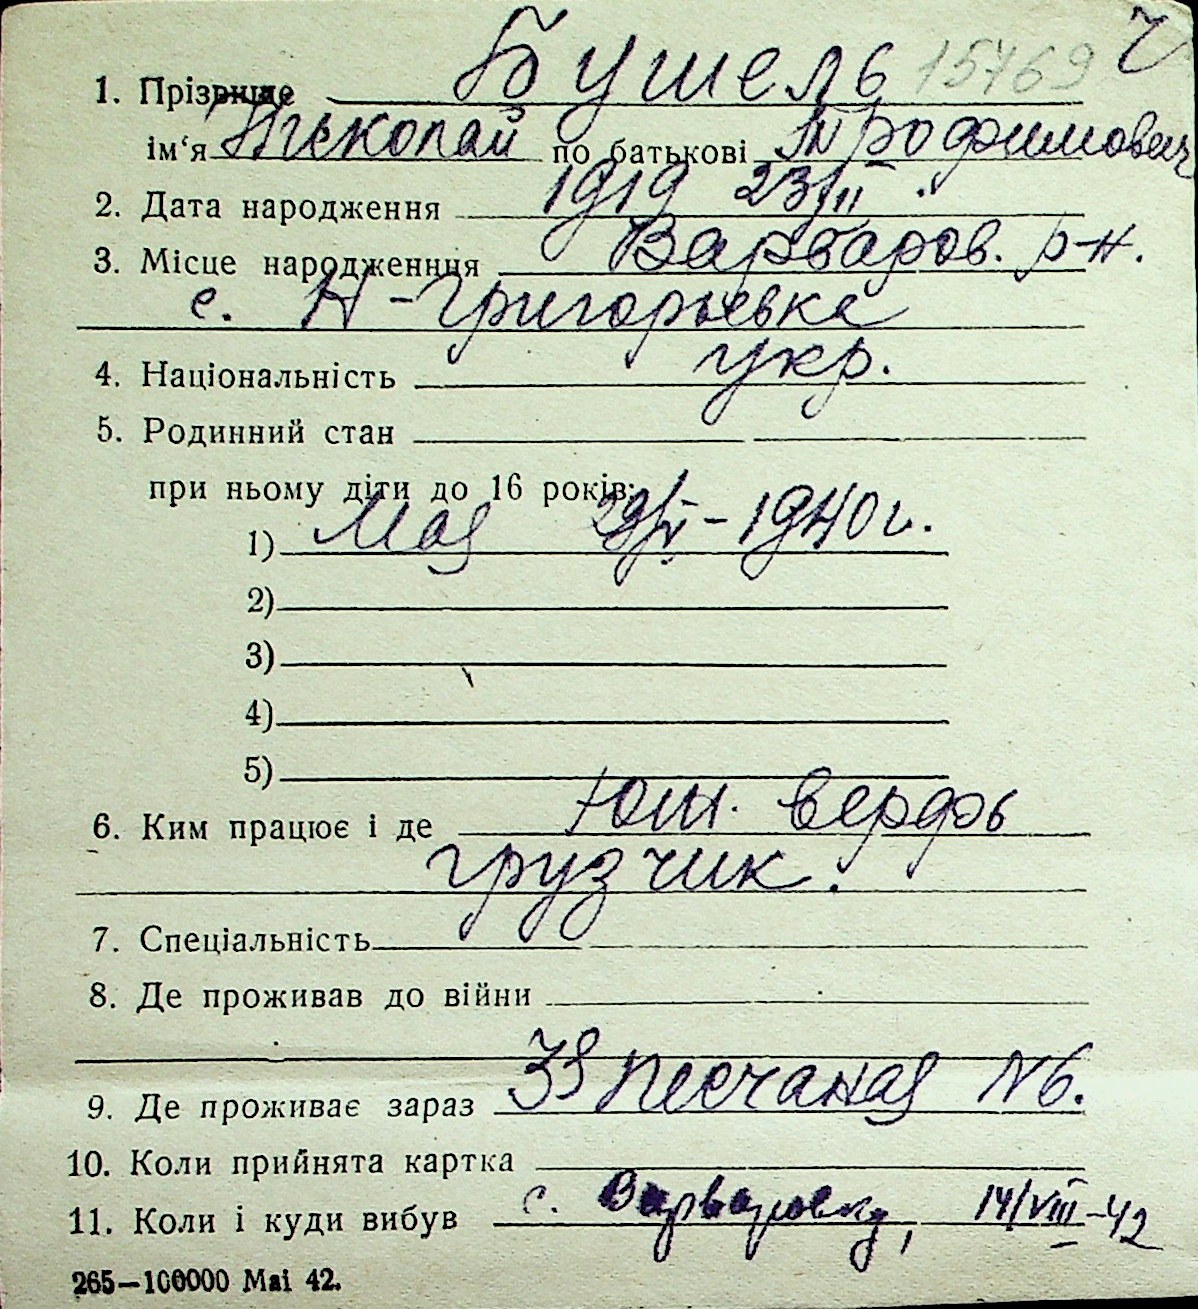 15769
1. Прізвище Бушель
ім‘я Николай по батькові Трофимович
2. Дата народження 1919 23/II.
3. Місце народженння Варваров. р-н.
с. Н-Григорьевка
4. Національність укр.
5. Родинний стан
при ньому діти до 16 років:
1) Мая 29/V-1940 г.
2)
3)
4)
5)
6. Ким працює і де верфь
грузчик.
7. Спеціальність
8. Де проживав до війни
9. Де проживає зараз Песчаная N6.
10. Коли прийнята картка
11. Коли і куди вибув с. Варваровку, 14/VIII-42
265—100000 Mai 42.